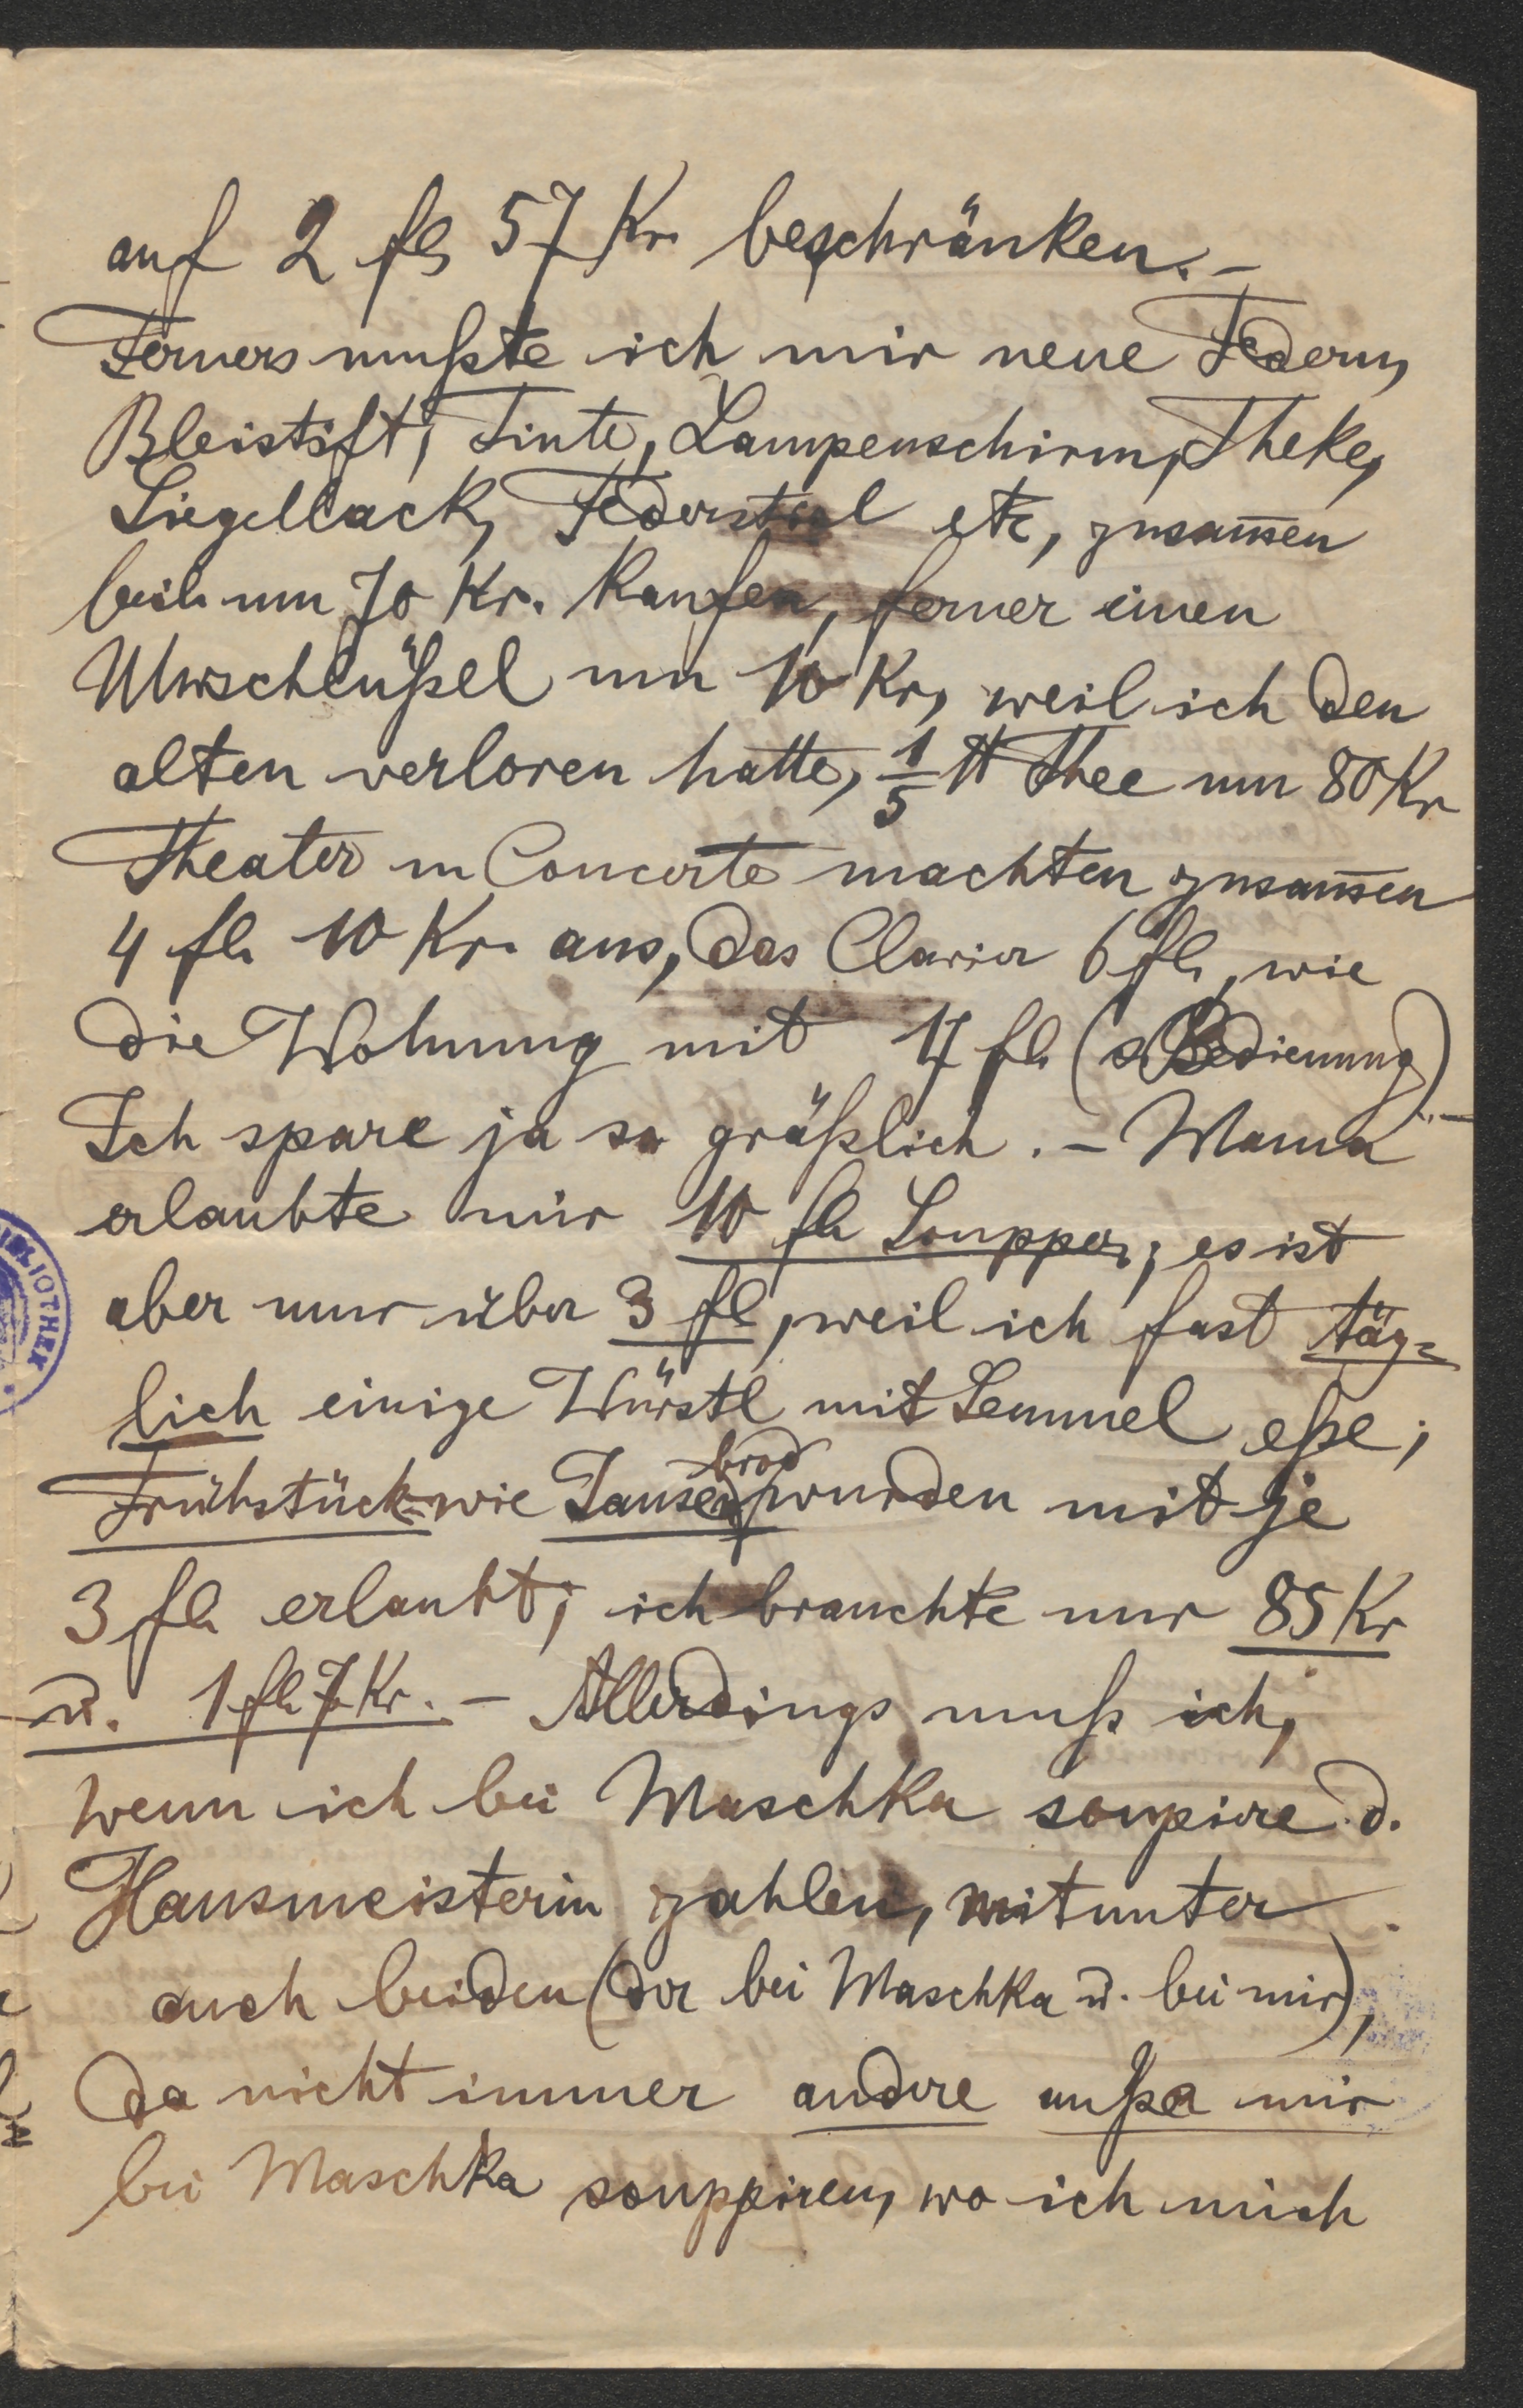 auf 2 fl, 57 Kr. beschränken. –
Ferners mußte ich mir neue Federn,
Bleistift, Tinte, Lampenschirm, Theke,
Siegellack, Federstiel etc, zusam̅en
beil. um 70 Kr. kaufen, ferner einen
Uhrschlüßel um 10 Kr, weil ich den
alten verloren hatte, 1/5 ℔ Thee um 80 Kr
Theater u Concerte machten zusam̅en
4 fl. 10 Kr. aus, das Clavier 6 fl, wie
die Wohnung mit 17 fl. (s. Bedienung)
Ich spare ja so gräßlich. – Mama
erlaubte mir 10 fl Soupper, es ist
aber nur über 3 fl, weil ich fast täg=
lich einige Würstl mit Semmel eße;
brod
Frühstück= wie Jausen wurden mit je
3 fl. erlaubt; ich brauchte nur 85 Kr
u. 1 fl. 7 Kr. – Allerdings muß ich,
wenn ich bei Maschka soupire d.
Hausmeisterin zahlen, mitunter
auch beiden (der bei Maschka u. bei mir),
da nicht immer andere außer mir
bei Maschka souppiren, wo ich mich
BIBLIOTHEK